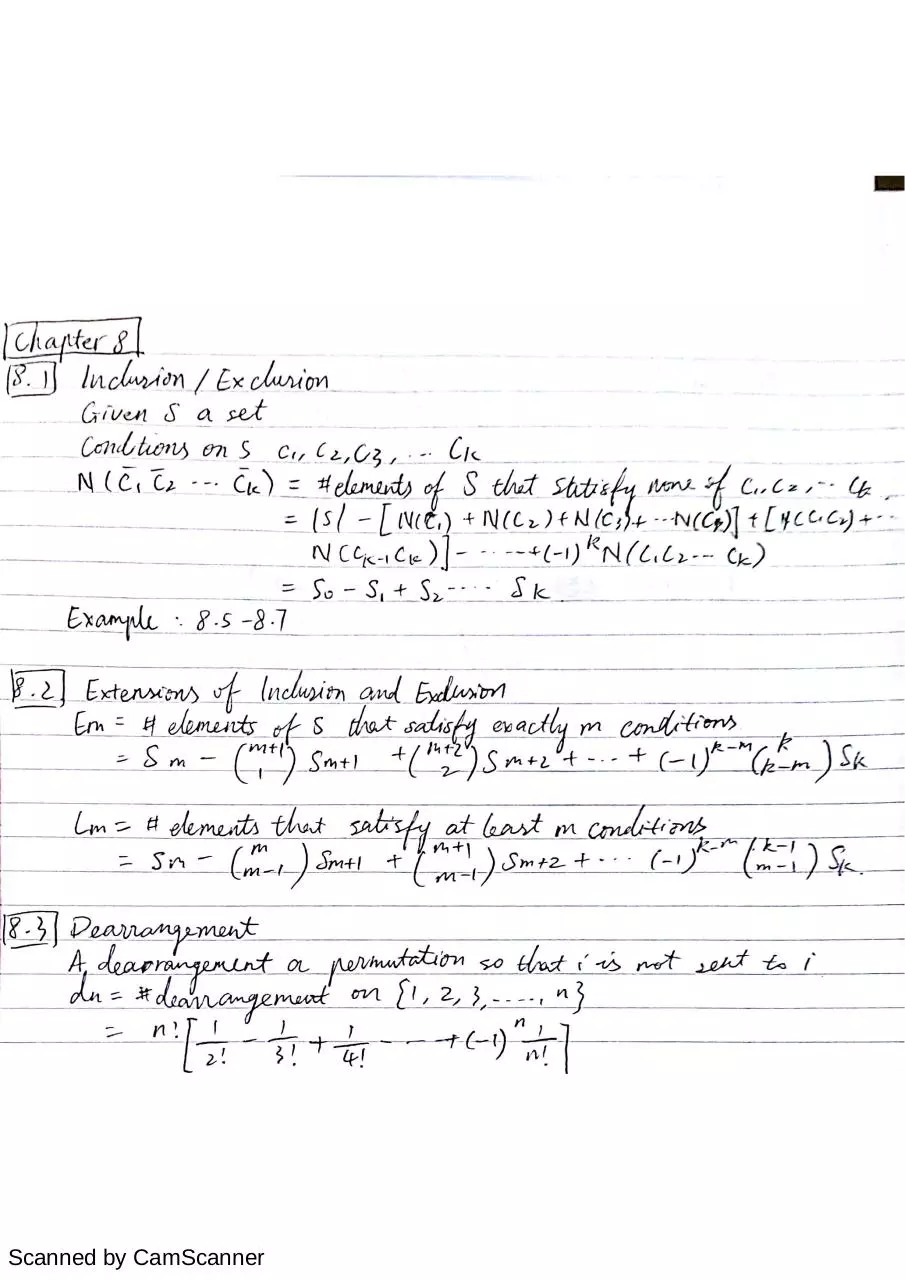 Chapter 8
8.1 Inclusion / Exclusion
Given S a set
Conditions on S C₁, C₂, C₃, ... Cₖ
N(C̄₁ C̄₂ --- C̄ₖ) = #elements of S that Statisfy none of C₁, C₂, ... Cₖ.
= |S| - [N(C₁) + N(C₂) + N(C₃) + ...N(Cₖ)] + [N(C₁C₂) + ...
N(Cₖ₋₁Cₖ)] - ----- + (-1)ᵏ N(C₁C₂--- Cₖ)
= S₀ - S₁ + S₂ ---- Sₖ
Example : 8.5 - 8.7
8.2 Extensions of Inclusion and Exclusion
Em = # elements of S that satisfy exactly m conditions
= Sm - (m+1 1) Sm+1 + (m+2 2) Sm+2 + --- + (-1)ᵏ⁻ᵐ (k k-m) Sk
Lm = # elements that satisfy at least m conditions
= Sm - (m m-1) Sm+1 + (m+1 m-1) Sm+2 + ... (-1)ᵏ⁻ᵐ (k-1 m-1) Sk.
8.3 Dearrangement
A dearrangement a permutation so that i is not sent to i
dn = #dearrangement on {1, 2, 3, ----, n}
= n! [1/2! - 1/3! + 1/4! - --- + (-1)ⁿ 1/n!]
Scanned by CamScanner